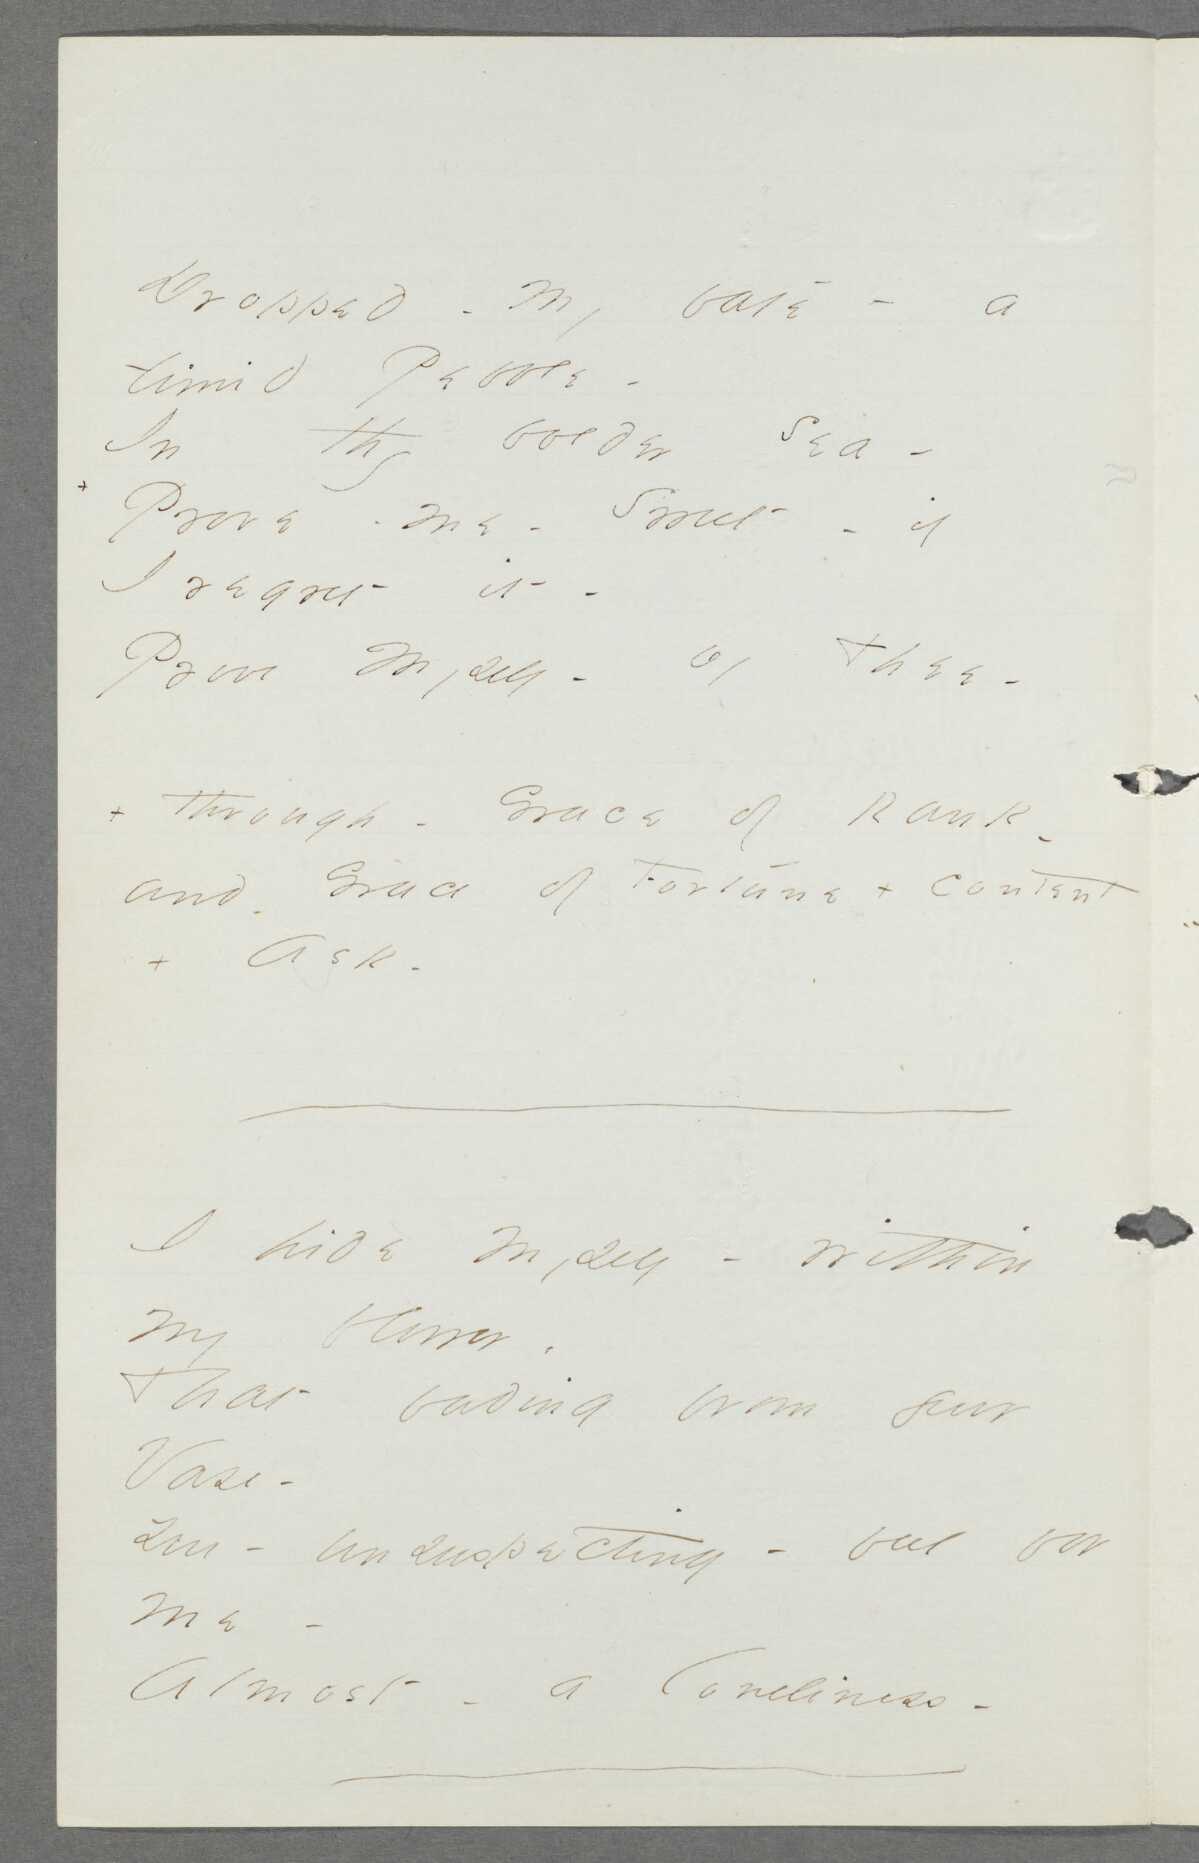 Dropped - My fate - a
timid Pebble -
In thy bolder Sea -
+ Prove - me - Sweet - if
I regret it -
Prove Myself - of Thee -
+ Through - Grace of Rank -
and - Grace of Fortune + Content
+ Ask -
I hide Myself - within
my flower,
That fading from your
Vase -
You - unsuspecting - feel for
me -
Almost - a loneliness -